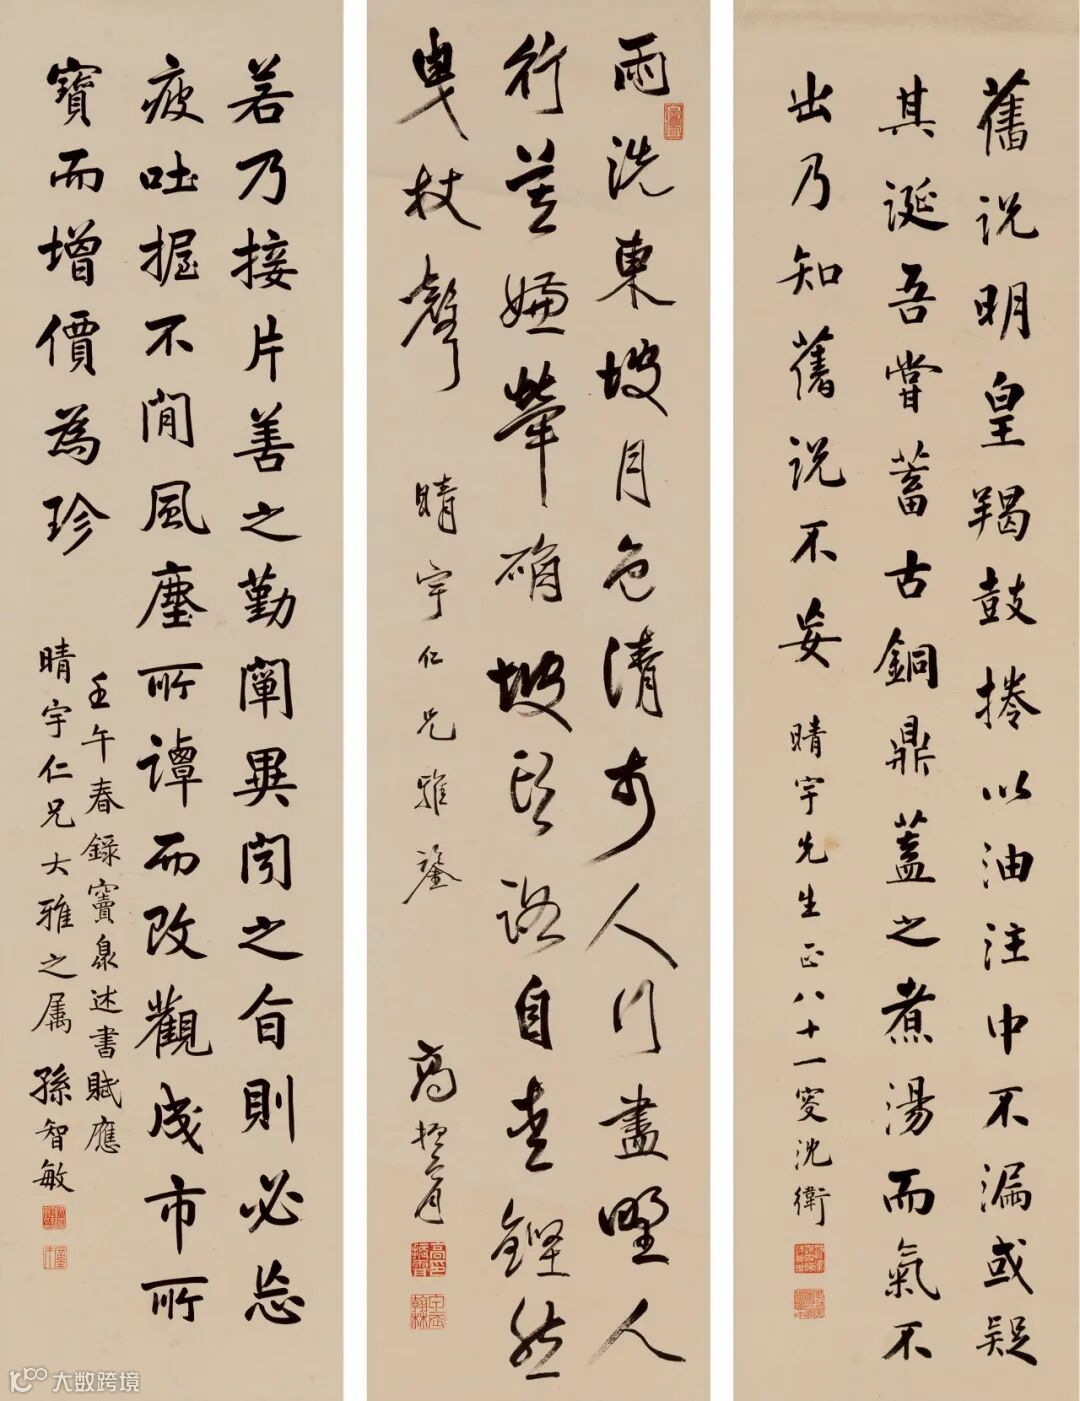 舊說明皇羯鼓捲以油注中不漏或疑
其誕吾嘗蓄古銅鼎蓋之煮湯而氣不
出乃知舊說不妄
晴宇先生正八十一叟沈衛
雨洗東坡月色清市人行盡野人
行莫嫌犖确坡頭路自愛鏗然
曳杖聲
晴宇仁兄雅鑒
高振霄
若乃接片善之勤闡異閤之旨則必忘
疲吐握不間風塵所譚而改觀成市所
寶而增價為珍
壬午春錄竇臮述書賦應
晴宇仁兄大雅之屬 孫智敏
大数跨境